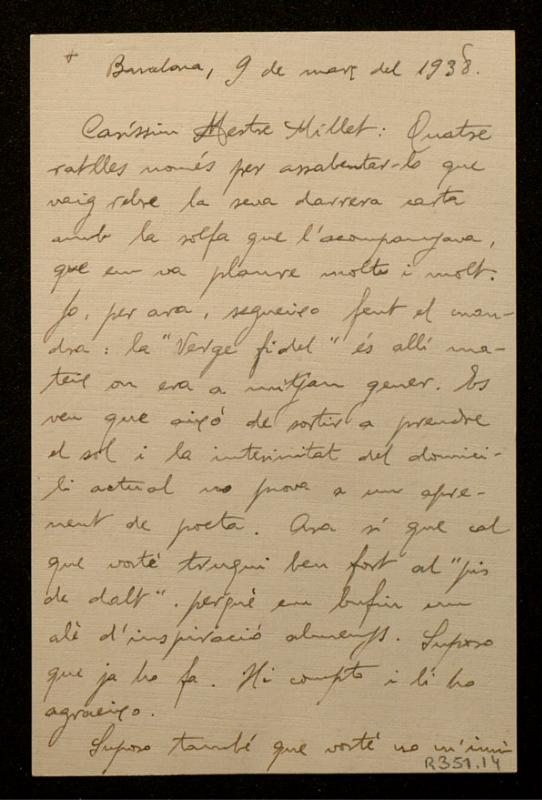 + Barcelona, 9 de març del 1938.
Caríssim Mestre Millet: Quatre
ratlles només per assabentar-lo que
vaig rebre la seva darrera carta
amb la solfa que l'acompanyava,
que em va plaure molt i molt.
Jo, per ara, segueixo fent el man-
dra: la "Verge fidel" és allí ma-
teix on era a mitjan gener. Es
veu que això de sortir a prendre
el sol i la interinitat del domici-
li actual no prova a un apre-
nent de poeta. Ara sí que cal
que vostè truqui ben fort al "pis
de dalt". perquè em bufin un
alè d'inspiració almenys. Suposo
que ja ho fa. Hi compto i li ho
agraeixo.
Suposo també que vostè no m'imi-
R351.14